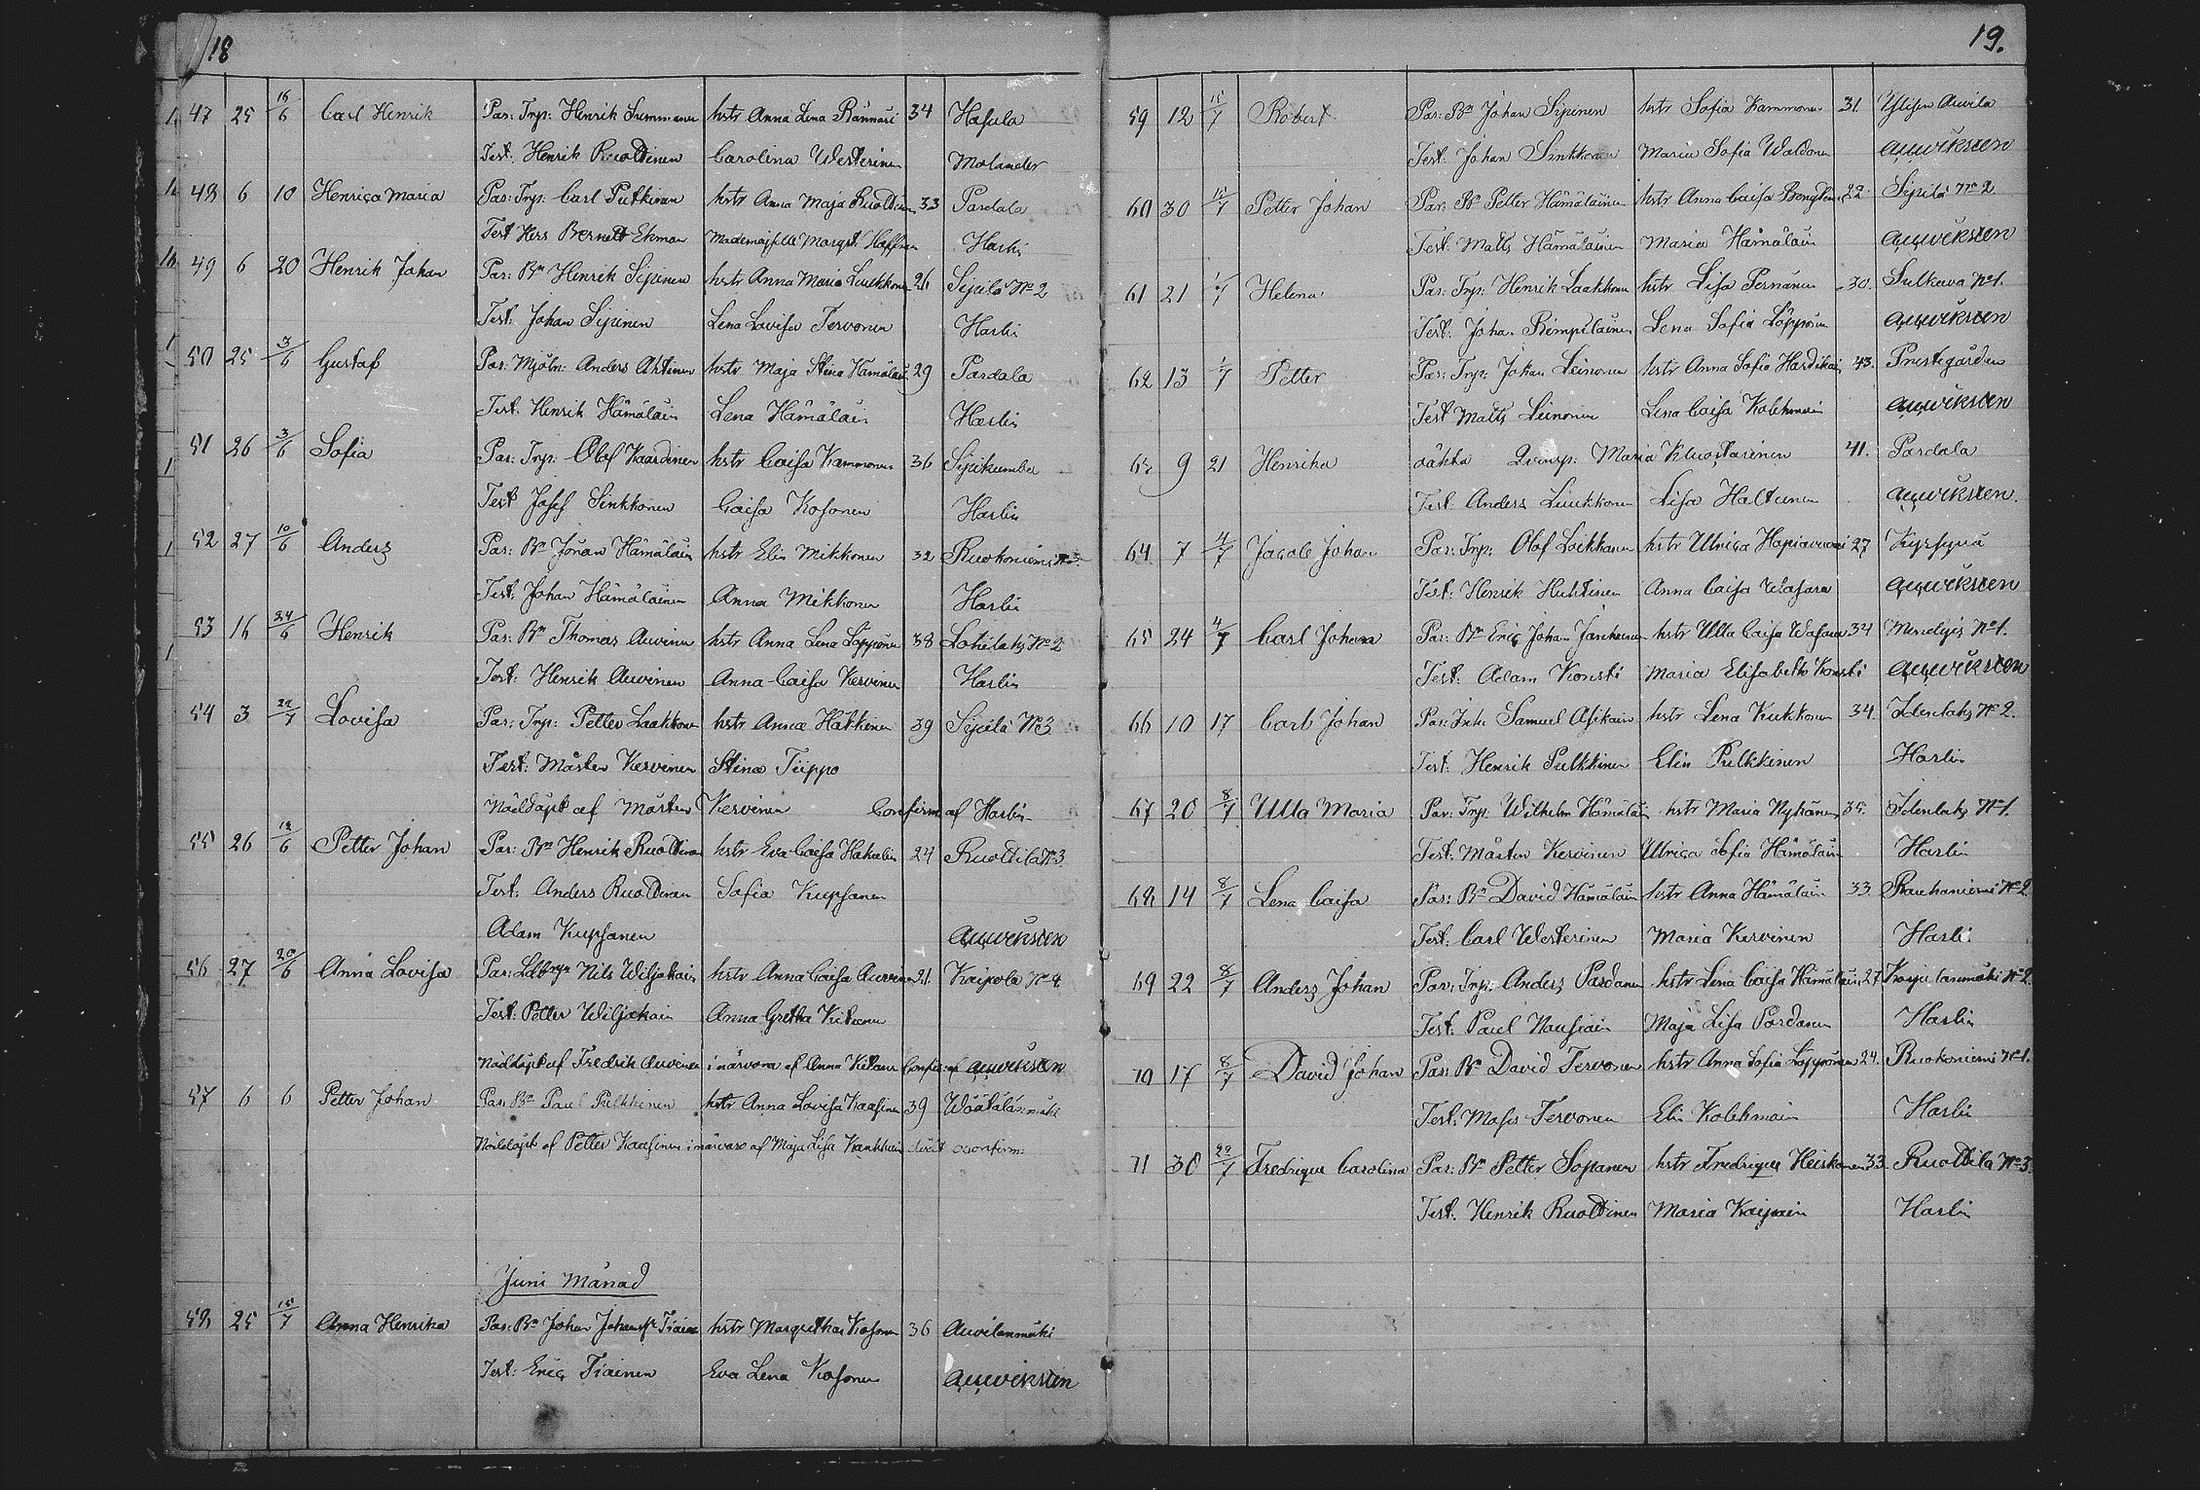 18
47 25 16/6 Carl Henrik Par: Trp: Henrik Summanen hstr Anna Lena Rännäri 34 Hasula
Test: Henrik Ruottinen Carolina Westerinen Molander
48 6 10 Henrica Maria Par: Trp: Carl Putkinen hstr Anna Maja Ruottinen 33 Pardala
Test Hers Berndt Ekman Mademoiselle Margrt Haffren Harlin
49 6 20 Henrik Johan Par: Bn Henrik Sipinen hstr Anna Maria Luukkonen 26 Sipilä No 2
Test: Johan Sipinen Lena Lovisa Tervonen Harlin
50 25 3/6 Gustaf Par: Mjöln: Anders Ahtinen hstr Maja Stina Hämäläin 29 Pardala
Test: Henrik Hämäläin Lena Hämäläin Harlin
51 26 3/6 Sofia Par: Trp: Olof Kaardinen hstr Caisa Kammonen 36
Test Josef Sinkkonen Caisa Kosonen Harlin
52 27 10/6 Anders Par: Bn Johan Hämäläin hstr Elin Mikkonen 32 Ruokoniemi
Test: Johan Hämäläinen Anna Mikkonen Harlin
53 16 24/6 Henrik Par: Bn Thomas Auvinen hstr Anna Lena Löppönen 38 Lohilaks No 2
Test: Henrik Auvinen Anna Caisa Kervinen Harlin
54 3 22/7 Lovisa Par: Trp: Petter Laakkonen hstr Anna Häkkinen 39 Sipilä No 3
Test: Mårten Kervinen Stina Tiippo
Nöddöpt af Mårten Kervinen Confirm af Harlin
55 26 12/6 Petter Johan Par: Bn Henrik Ruottinen hstr Eva Caisa Hakulin 24 Ruottila No 3
Test: Anders Ruottinen Sofia Kupsanen
Adam Kupsanen Aqwiksten
56 27 20/6 Anna Lovisa Par: Ldbtrp Nils Wiljakain hstr Anna Caisa Auvinen 21. Kaipola No 4
Test: Petter Wiljakain Anna Gretha Kitunen
Nöddöpt af Fredrik Auvinen i närvaro af Anna Kitunen Confir: af Aqwiksten
57 6 6 Petter Johan Par: Bn Paul Pulkkinen hstr Anna Lovisa Kaasinen 39 Wäätälänmäki
Nöddöpt af Petter Kaasinen i närvaro af Maja Lisa
Juni Månad
58 25 15/7 Anna Henrika Par: Bn Johan Johanss: Tiainen hstr Margretha Kosonen 36 Auvilanmäki
Test: Eric Tiainen Eva Lena Kosonen Aqwiksten
19.
59 12 15/7 Robert Par: Bn Johan Sipinen hstr Sofia Kammonen 31. Auvila
Test: Johan Sinkkonen Maria Sofia Waldonen Aqwiksten
60 30 15/7 Petter Johan Par: Bn Petter Hämäläinen hstr Anna Caisa 22. Sipilä No 2
Test: Matts Hämäläinen Maria Hämäläin Aqwiksten
61 21 1/7 Helena Par: Trp: Henrik Laakkonen hstr Lisa Pernänen 30. Sulkava No 1.
Test: Johan Rimpiläinen Lena Sofia Löppönen Aqwiksten
62 13 1/7 Petter Par: Trp: Johan Leinonen hstr Anna Sofia Hardikain 43. Prestgården
Test Matts Leinonen Lena Caisa Kolehmain Aqwiksten
63 9 21 Henrika oäkta Qvinsp: Maria 41. Pardala
Test Anders Luukkonen Lisa Haltunen Aqwiksten.
64 7 4/7 Jacob Johan Par: Trp: Olof Loikkanen hstr Ulrica Hapiavuori 27 Kyrsyvä
Test: Henrik Huhtinen Anna Caisa Wasara Aqwiksten
65 24 4/7 Carl Johan Par: Bn Eric Johan hstr Ulla Caisa Wasara 34 No 1.
Test: Adam Konsti Maria Elisabeth Konsti Aqwiksten
66 10 17 Carl Johan Par: Inh: Samuel Asikain hstr Lena Kukkonen 34. Idenlaks No 2.
Test: Henrik Pulkkinen Elin Pulkkinen Harlin
67 20 8/7 Ulla Maria Par: Trp. Wilhelm Hämäläin hstr Maria Nykänen 35. Idenlaks No 1.
Test: Mårten Kervinen Ulrica Sofia Hämäläin Harlin
68 14 8/7 Lena Caisa Par: Bn David Hämäläin hstr Anna Hämäläin 33. Rauhaniemi No 2
Test: Carl Westerinen Maria Kervinen Harli
69 22 8/7 Anders Johan Par: Trp: Anders Pardanen hstr Lena Caisa Hämäläin 27 No 2.
Test: Paul Nousiain Maja Lisa Pardanen Harlin
70 17 8/7 David Johan Par: Bn David Tervonen hstr Anna Sofia Löppönen 24. Ruokoniemi No 1.
Test: Moses Tervonen Elin Kolehmain Harlin
71 30 29/7 Fredrique Carolina Par: Bn Petter Sopanen hstr Fredrique Heiskanen 33 Ruottila No 3
Test: Henrik Ruottinen Maria Kaipain Harlin